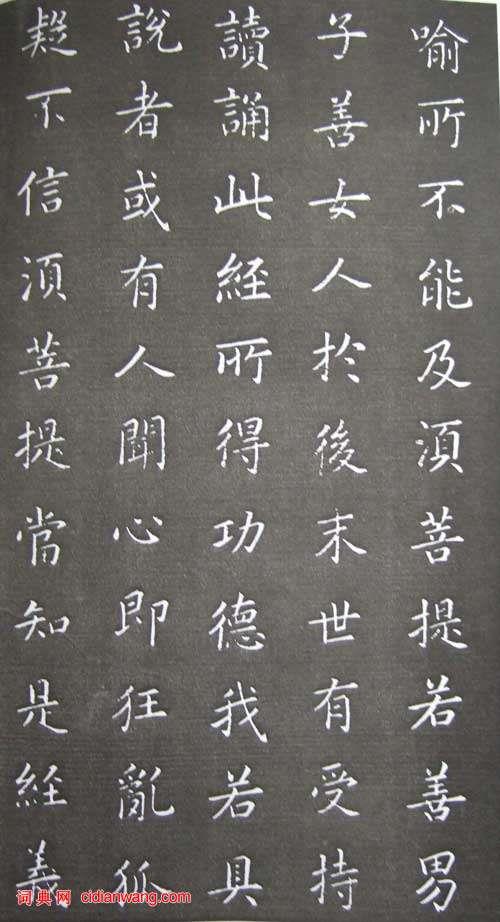 喻所不能及須菩提若善男
子善女人於後末世有受持
讀誦此經所得功德我若具
說者或有人聞心即狂亂狐
疑不信須菩提當知是經義
词典网 cidianwang.com